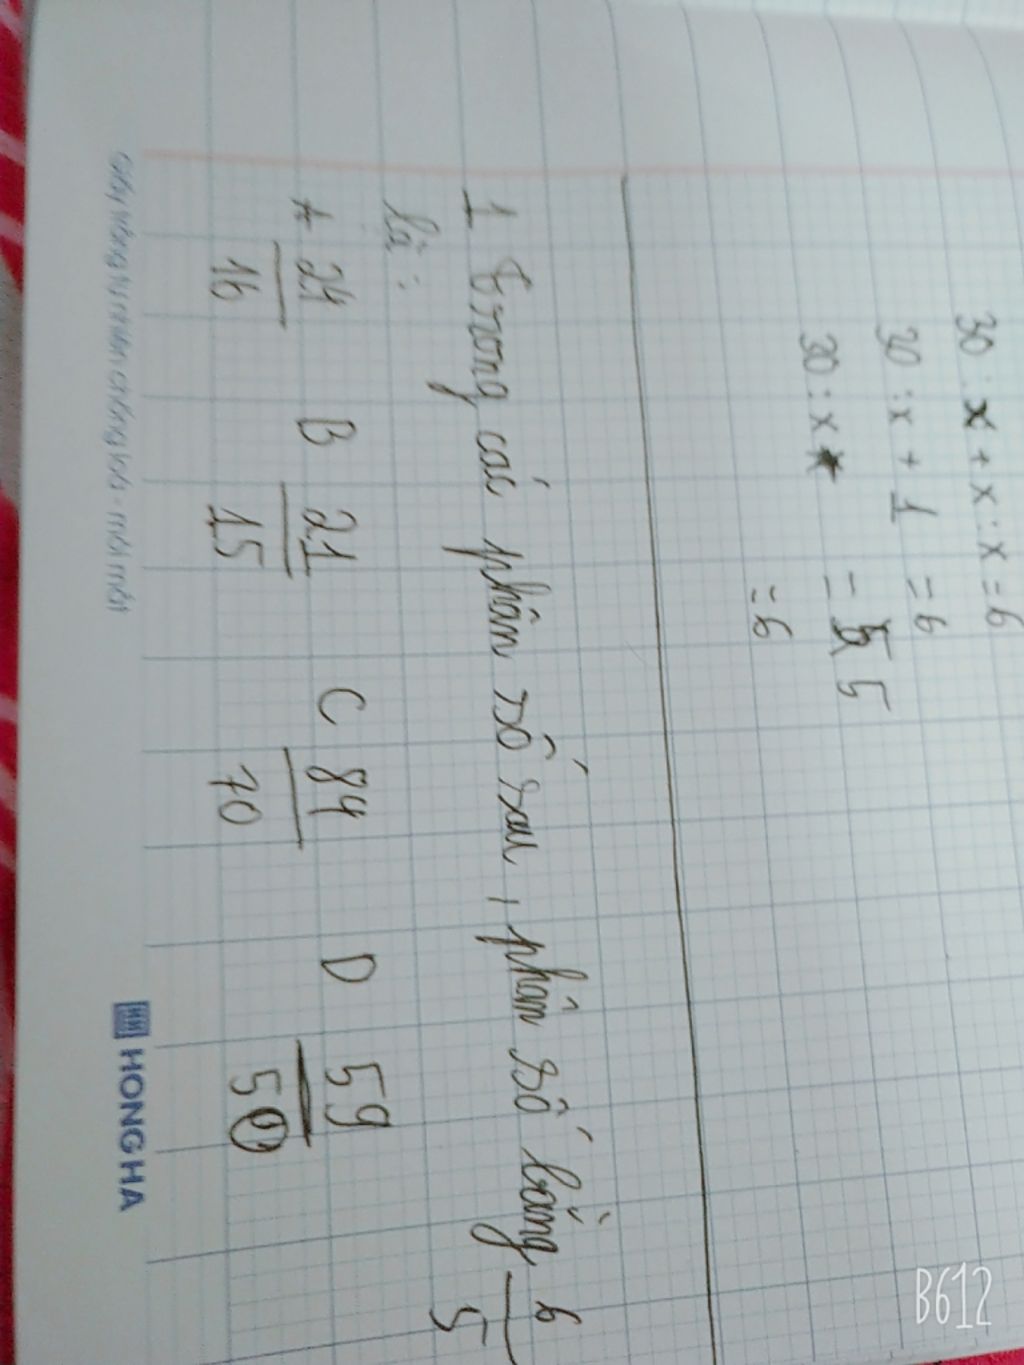 30 : x + x : x = 6
30 : x + 1 = 6
30 : x = 5 5
= 6
1 Trong các phân số sau, phân số bằng 6/5
là :
A 24/16 B 21/15 C 84/70 D 59/50
Giấy trắng tự nhiên chống loá - mỏi mắt
HH HONG HA
B612